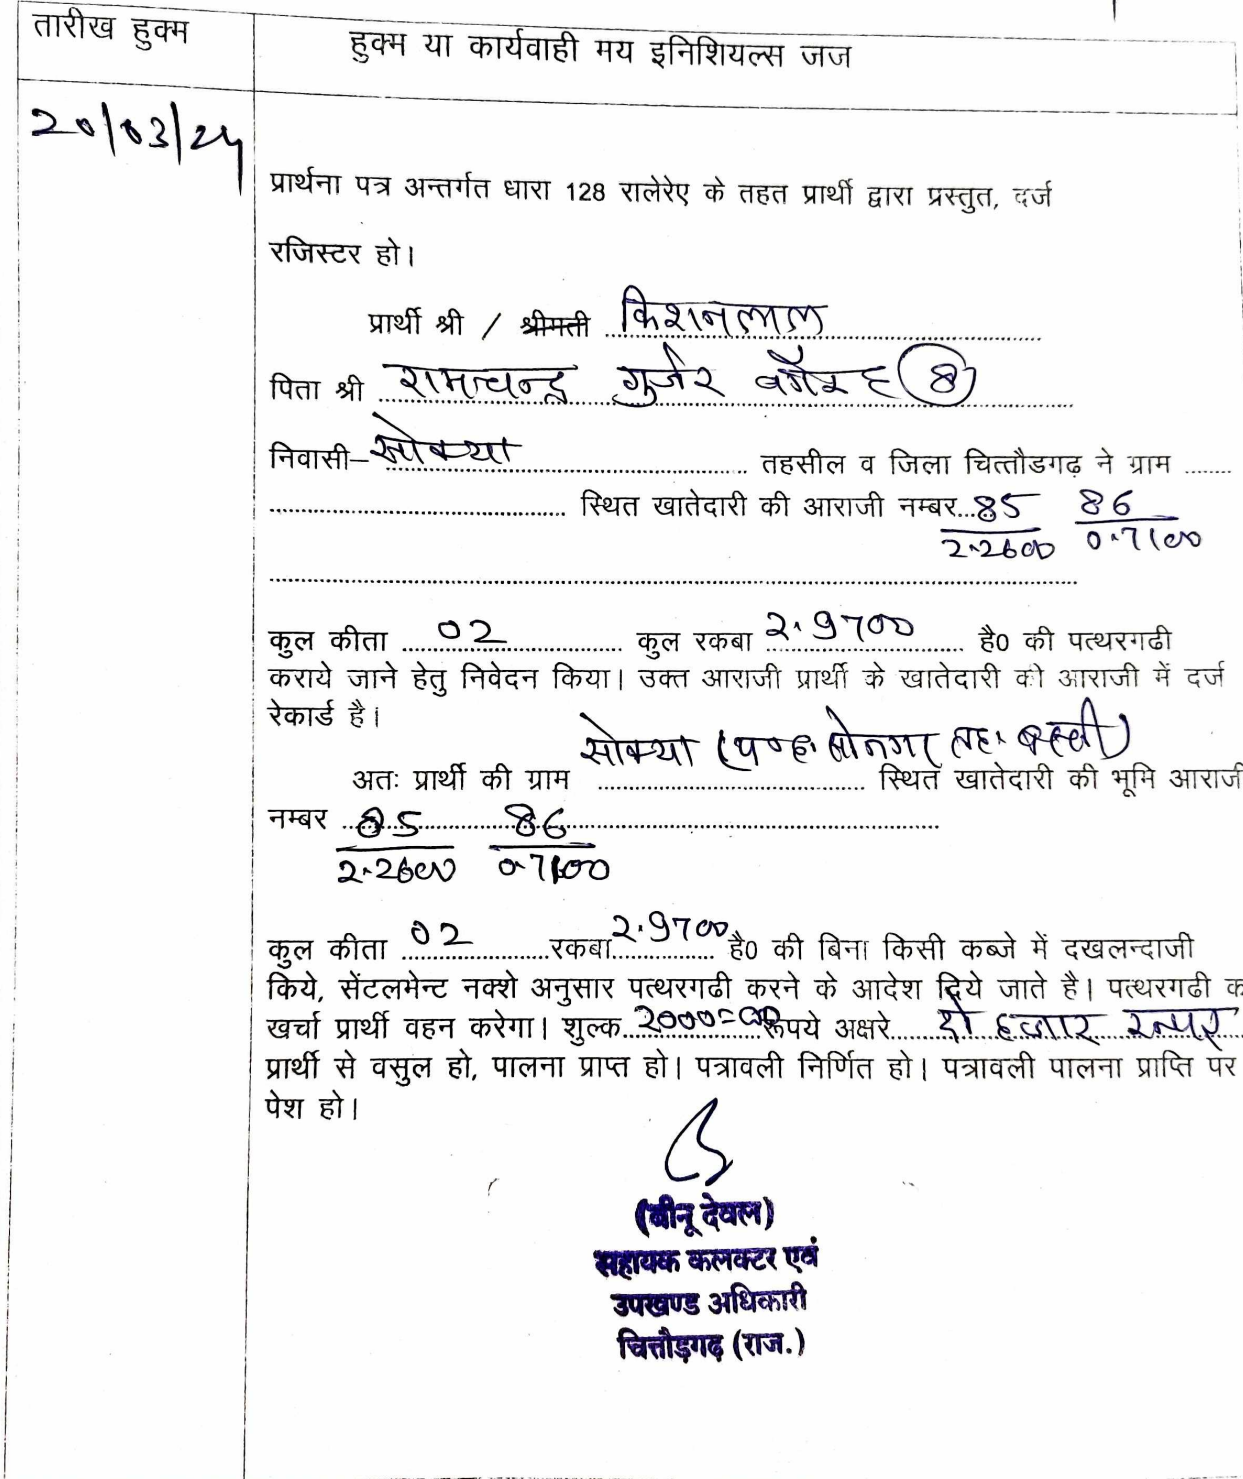 तारीख हुक्म
हुक्म या कार्यवाही मय इनिशियल्स जज
20/03/24
प्रार्थना पत्र अन्तर्गत धारा 128 रालेरेए के तहत प्रार्थी द्वारा प्रस्तुत, दर्ज
रजिस्टर हो।
प्रार्थी श्री / श्रीमती किशनलाल
पिता श्री रामचन्द्र गुर्जर वगैरह (8)
निवासी– सोक्या तहसील व जिला चित्तौडगढ़ ने ग्राम ........
........ स्थित खातेदारी की आराजी नम्बर...85 86
2.2600 0.7100
कुल कीता 02 कुल रकबा 2.9700 है0 की पत्थरगढी
कराये जाने हेतु निवेदन किया। उक्त आराजी प्रार्थी के खातेदारी की आराजी में दर्ज
रेकार्ड है।
अतः प्रार्थी की ग्राम सोक्या (प०ह० सोनगर तह. बस्सी) स्थित खातेदारी की भूमि आराजी
नम्बर 85 86
2.2600 0.7100
कुल कीता 02 रकबा 2.9700 है0 की बिना किसी कब्जे में दखलन्दाजी
किये, सेंटलमेन्ट नक्शे अनुसार पत्थरगढी करने के आदेश दिये जाते है। पत्थरगढी क
खर्चा प्रार्थी वहन करेगा। शुल्क 2000=00 रूपये अक्षरे दो हजार रुपए
प्रार्थी से वसुल हो, पालना प्राप्त हो। पत्रावली निर्णित हो। पत्रावली पालना प्राप्ति पर
पेश हो।
(बीनू देवल)
सहायक कलक्टर एवं
उपखण्ड अधिकारी
चित्तौड़गढ़ (राज.)